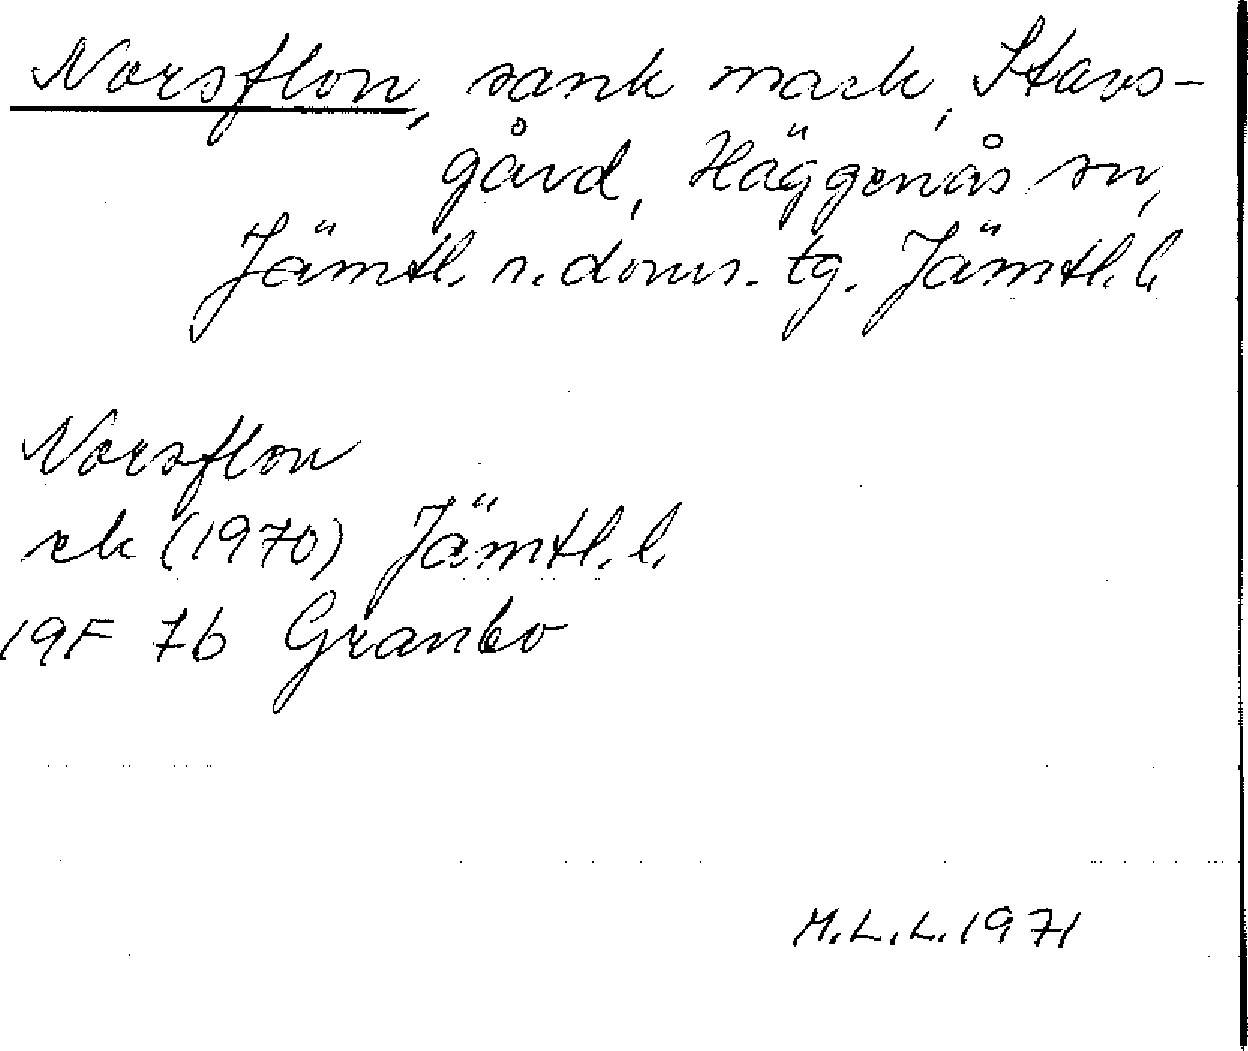 Norsflon, sank mark, Stavs-
gård, Häggenås sn,
Jämtl. n. doms. tg. Jämtl. l.
Norsflon
ek (1970) Jämtl. l.
19F 7b Granbo
M.L.L. 1971